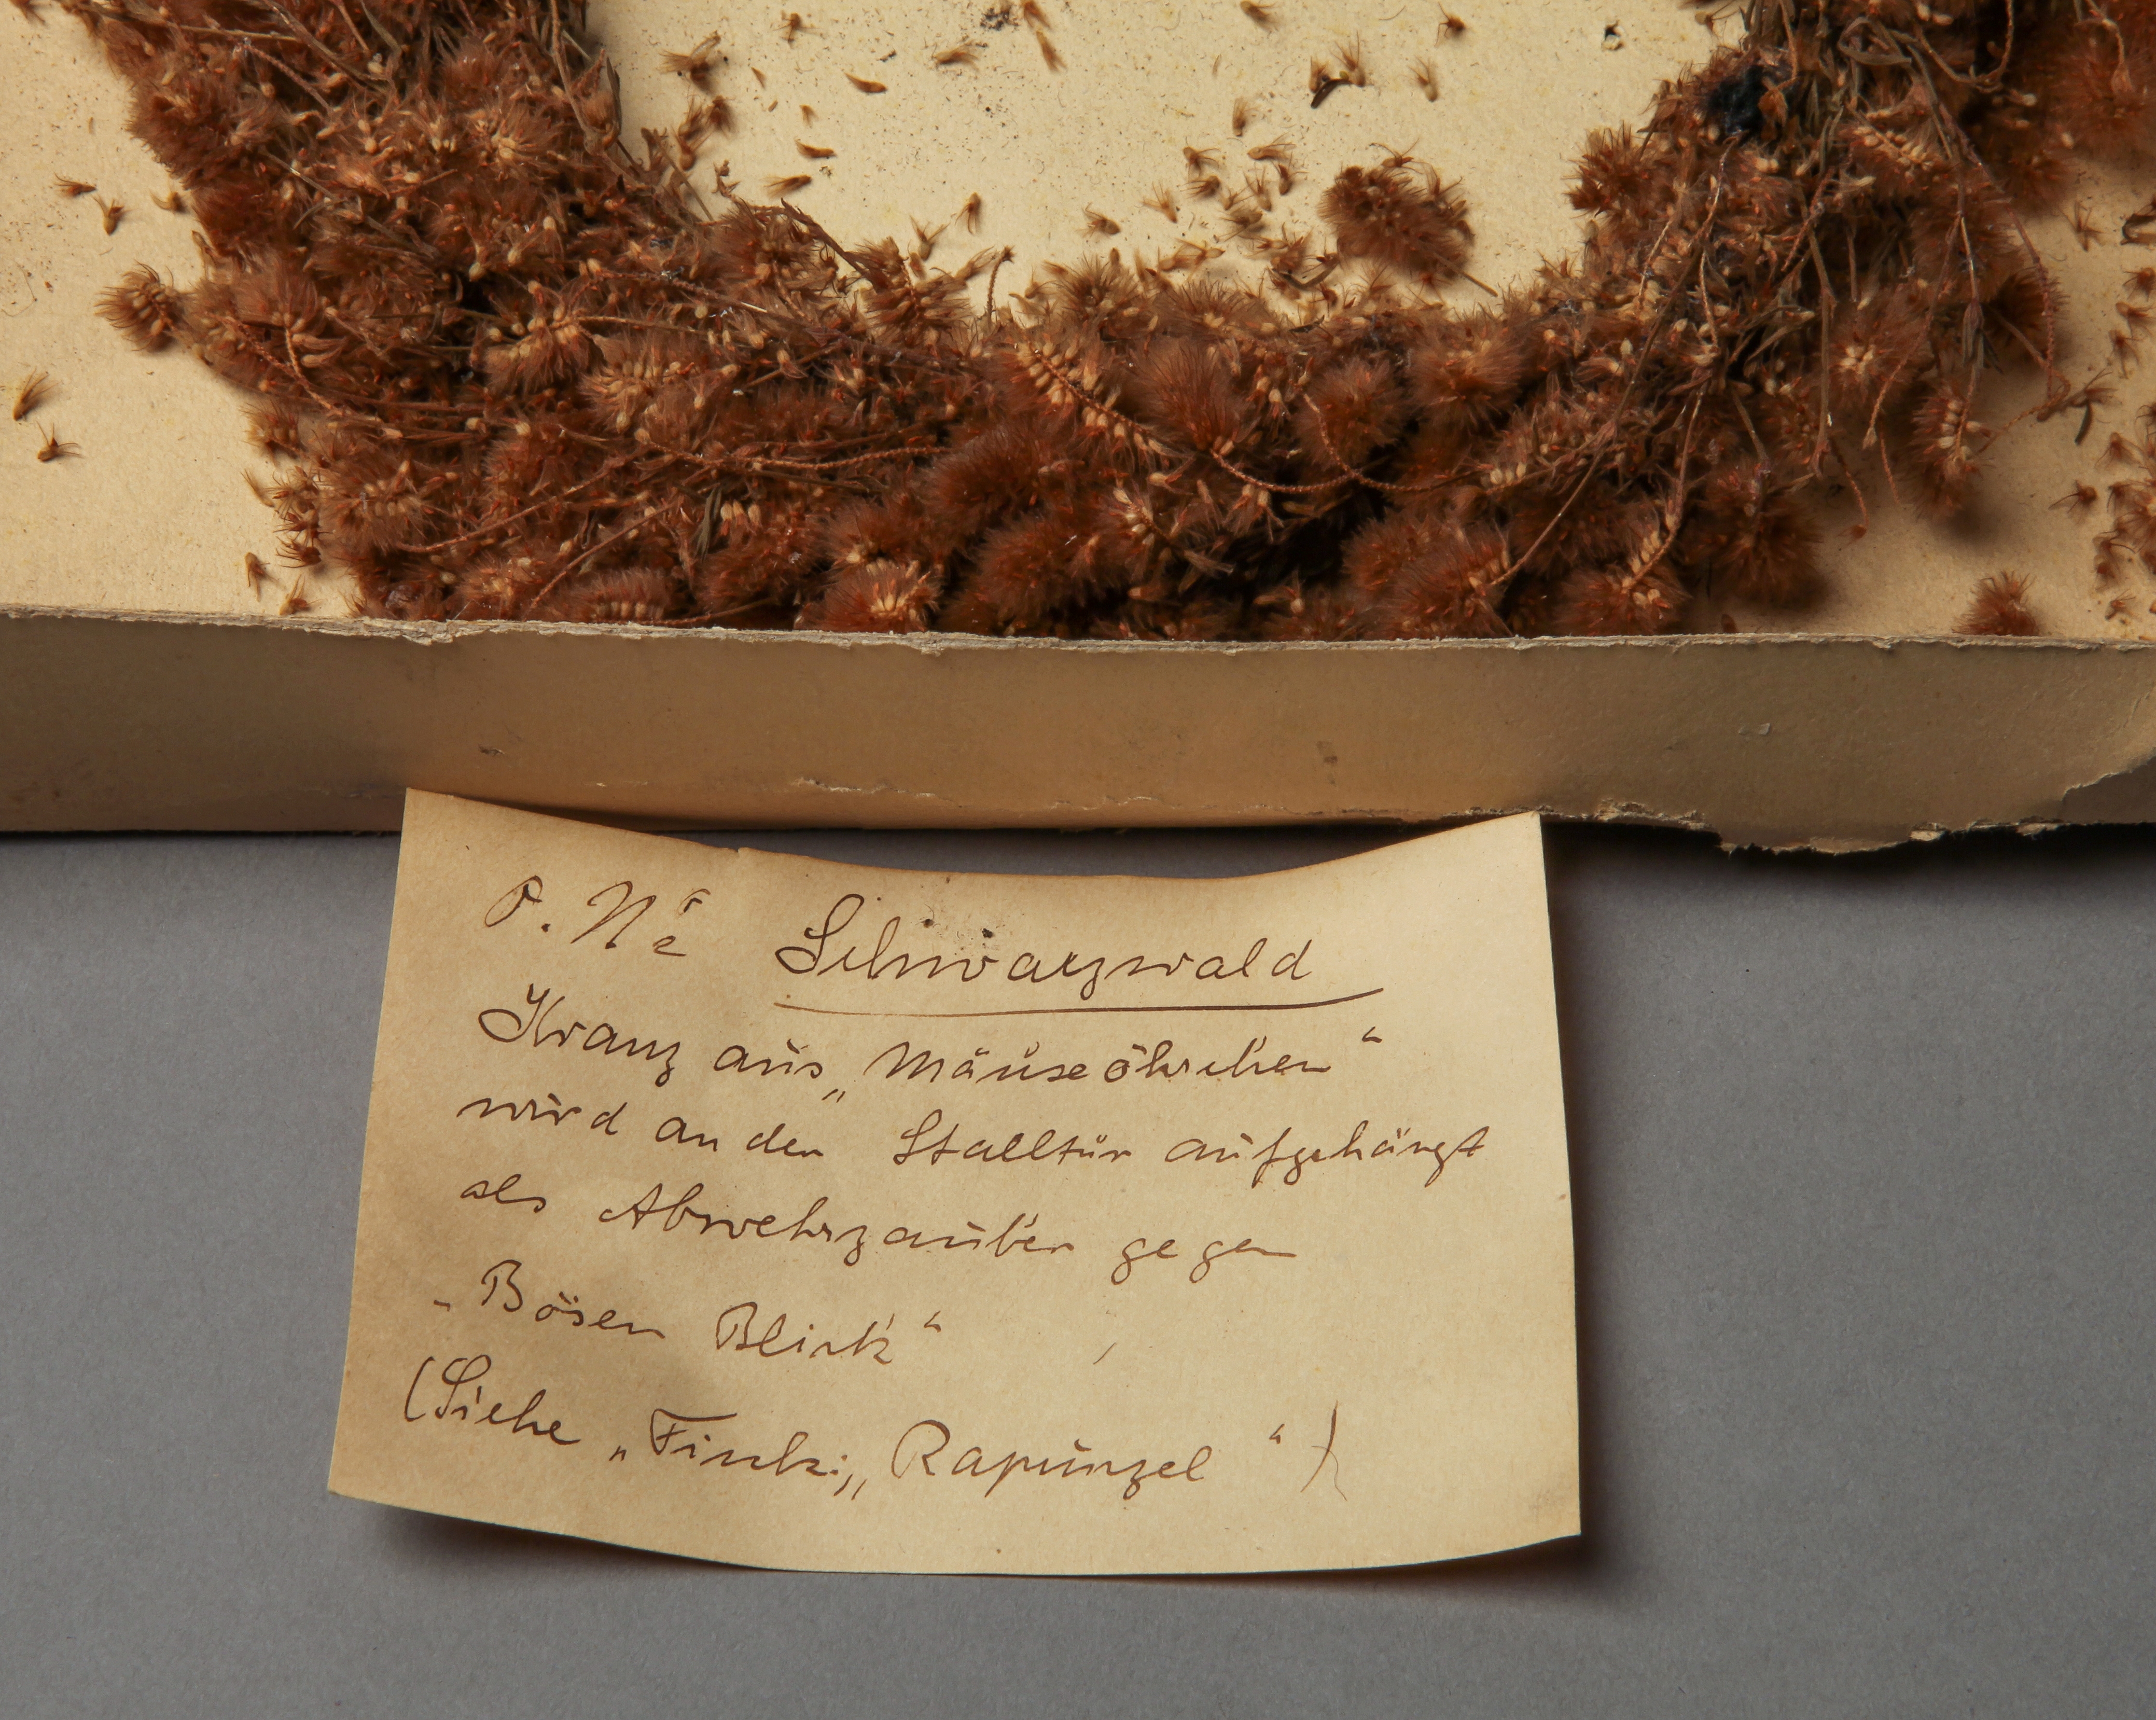 O. Nr. Schwarzwald
Kranz aus „Mäuseöhrchen“
wird an der Stalltür aufgehängt
als Abwehrzauber gegen
„Bösen Blick“
(Siehe „Finck: „Rapunzel“)